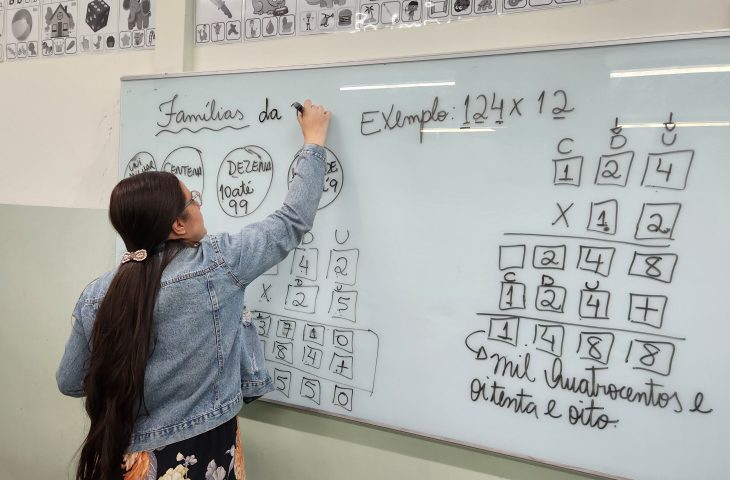 Famílias da
EXEMPLO: 124 x 12
CENTENA
DEZENA
10 até
99
C D U
1 2 4
X 1 2
2 4 8
C D U
1 2 4 +
1 4 8 8
mil quatrocentos e
oitenta e oito.
D U
4 2
X 2 5
0
8 4 +
5 5 0